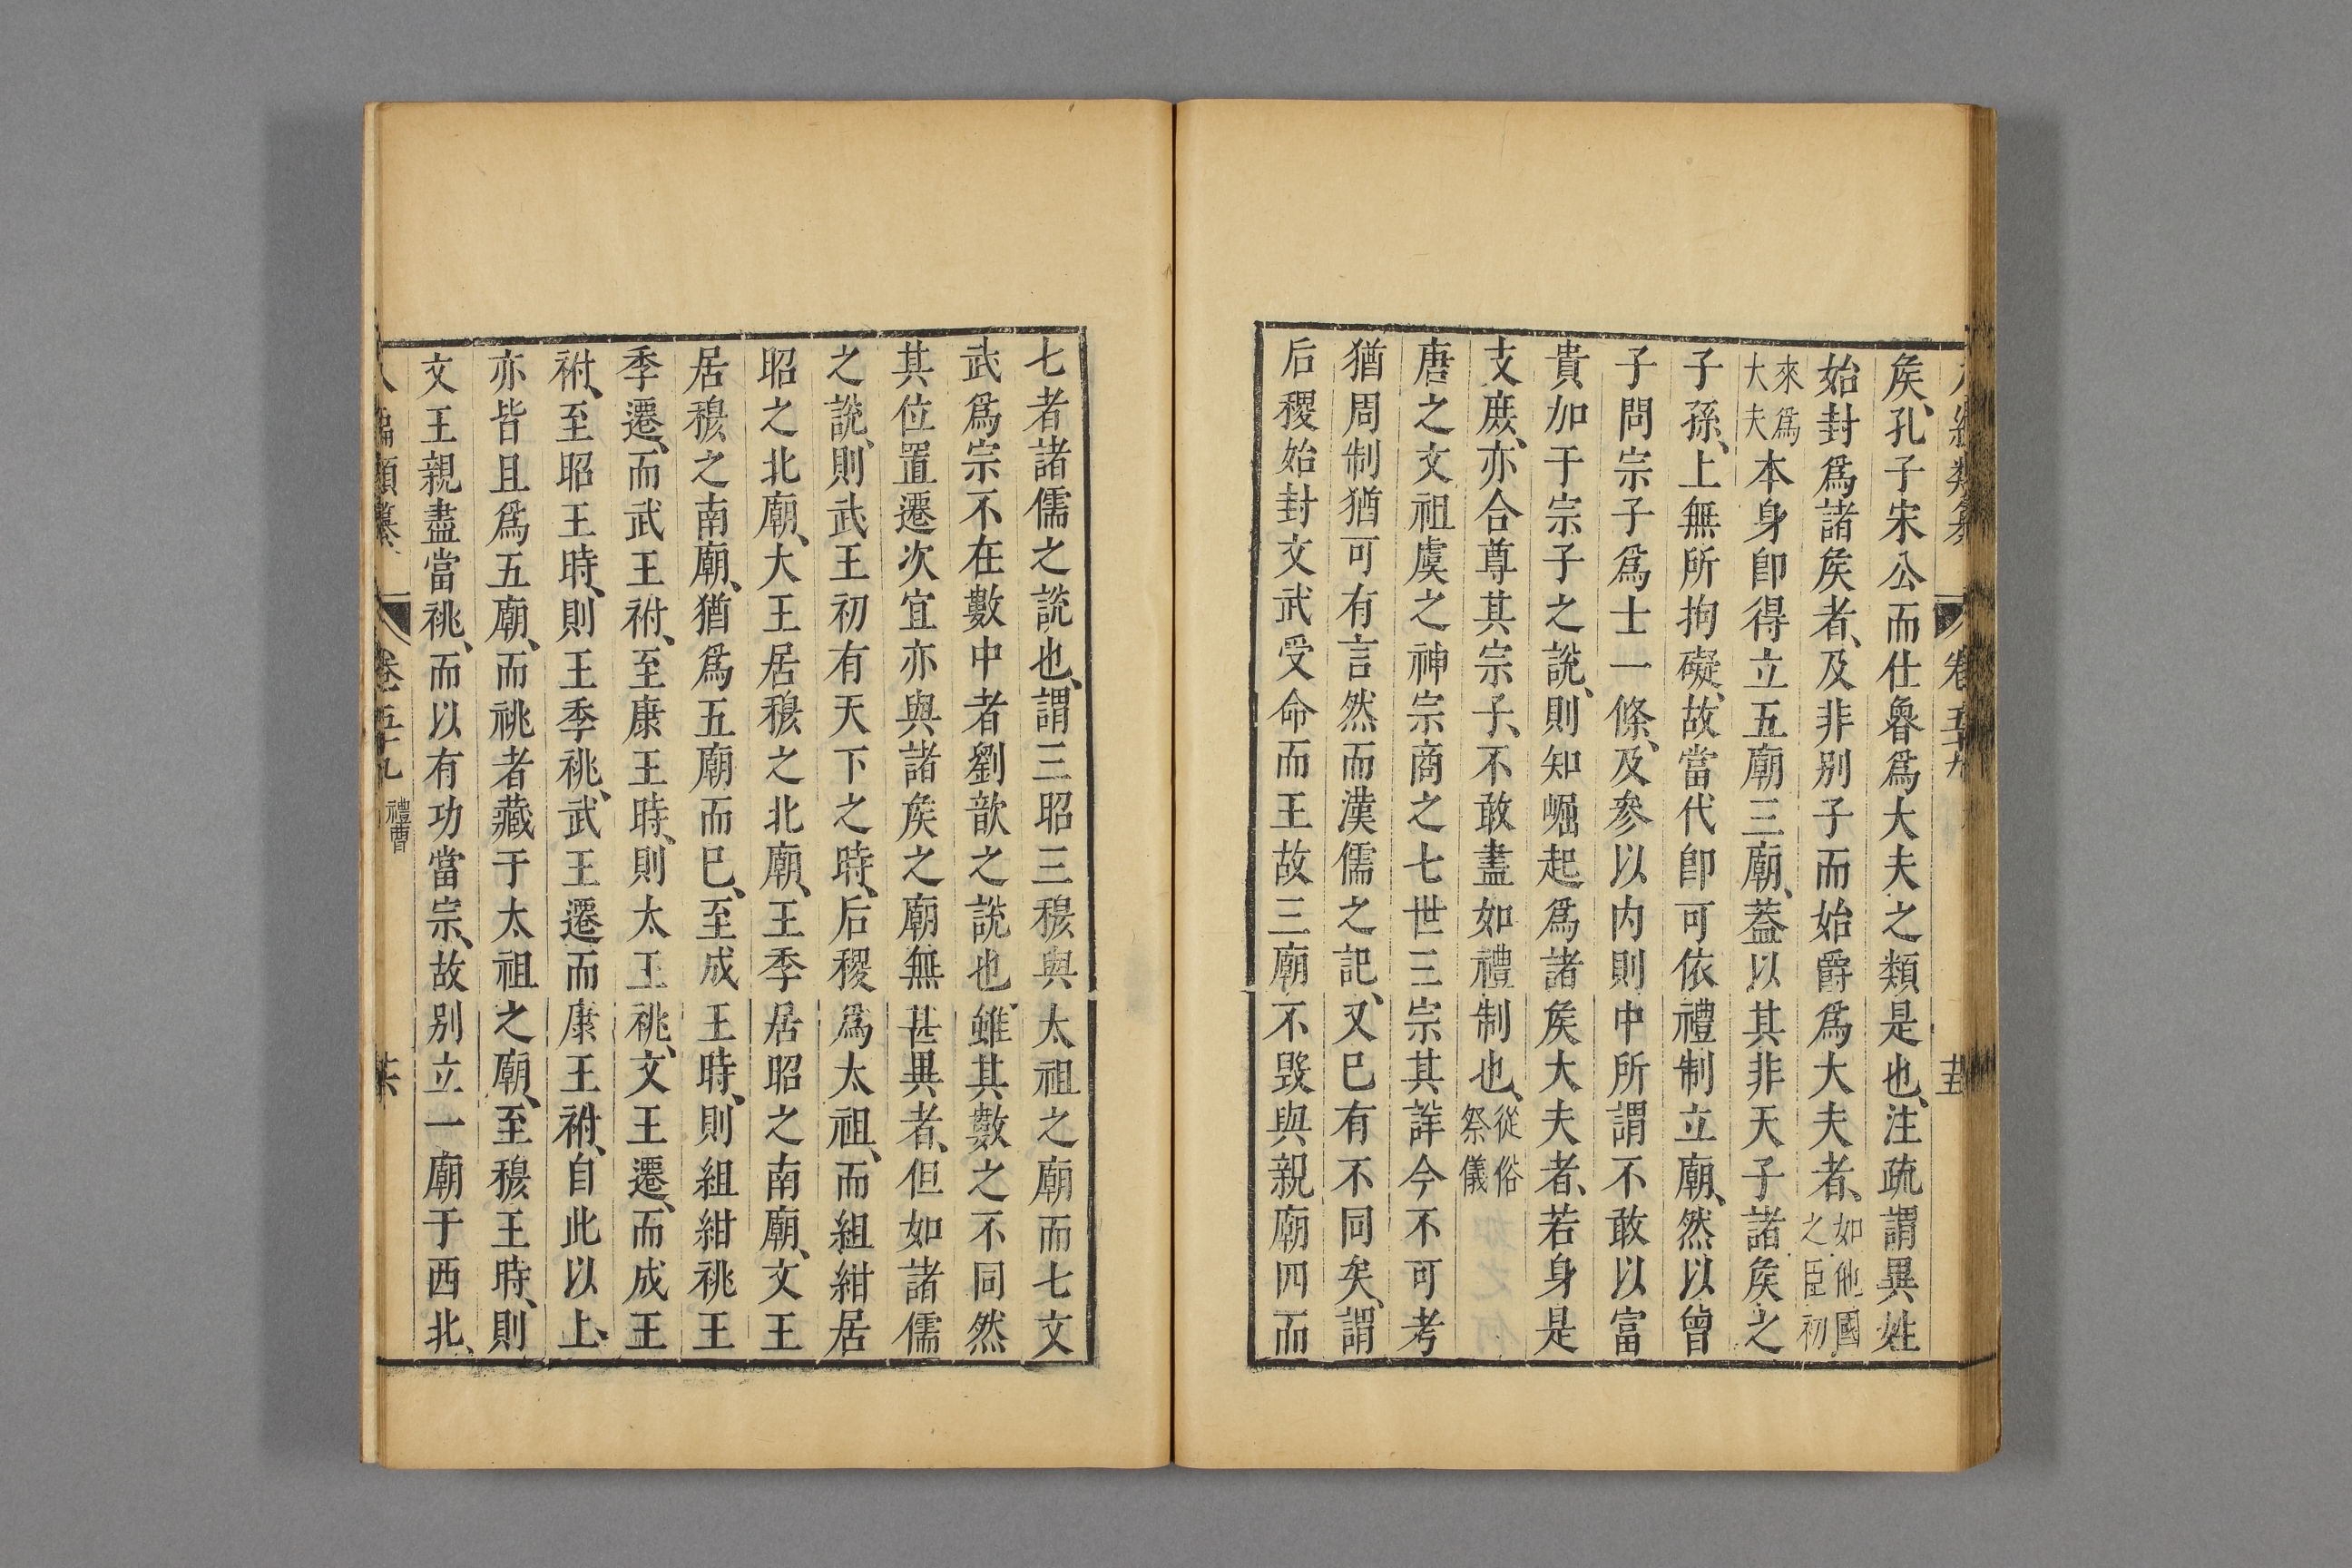 矦、孔子宋公而仕魯爲大夫之類是也、注疏謂異姓
始封爲諸矦者、及非别子而始爵爲大夫者、如他國之臣初
來爲大夫本身卽得立五廟三廟、葢以其非天子諸矦之
子孫、上無所拘礙、故當代卽可依禮制立廟、然以曾
子問宗子爲士一條、及參以内則中所謂不敢以富
貴加于宗子之說、則知崛起爲諸矦大夫者、若身是
支庶、亦合尊其宗子、不敢盡如禮制也、從俗祭儀
唐之文祖虞之神宗商之七世三宗其詳今不可考
猶周制猶可有言然而漢儒之記、又巳有不同矣、謂
后稷始封文武受命而王故三廟不毀與親廟四而
七者諸儒之說也、謂三昭三穆與太祖之廟而七文
武爲宗不在數中者劉歆之說也、雖其數之不同然
其位置遷次宜亦與諸矦之廟無甚異者、但如諸儒
之說、則武王初有天下之時、后稷爲太祖、而組紺居
昭之北廟、大王居穆之北廟、王季居昭之南廟、文王
居穆之南廟、猶爲五廟而巳、至成王時、則組紺祧王
季遷、而武王祔、至康王時、則太王祧、文王遷、而成王
祔、至昭王時、則王季祧、武王遷而康王祔、自此以上、
亦皆且爲五廟、而祧者藏于太祖之廟、至穆王時、則
文王親盡當祧、而以有功當宗、故别立一廟于西北、
八編類纂 卷五十九 禮曹